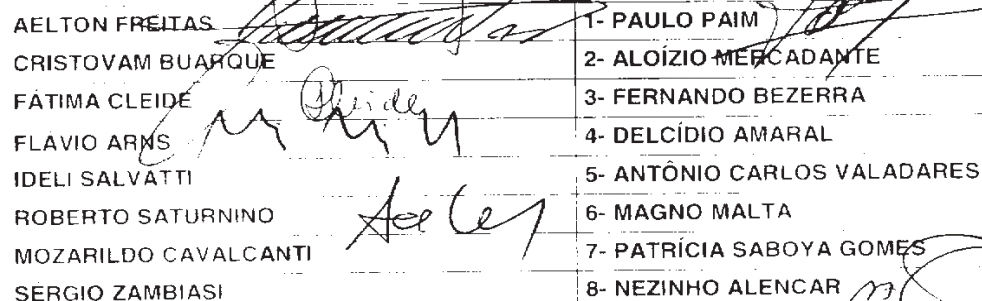 AELTON FREITAS 1- PAULO PAIM
CRISTOVAM BUARQUE 2- ALOÍZIO MERCADANTE
FÁTIMA CLEIDE Cleide 3- FERNANDO BEZERRA
FLÁVIO ARNS 4- DELCÍDIO AMARAL
IDELI SALVATTI 5- ANTÔNIO CARLOS VALADARES
ROBERTO SATURNINO 6- MAGNO MALTA
MOZARILDO CAVALCANTI 7- PATRÍCIA SABOYA GOMES
SÉRGIO ZAMBIASI 8- NEZINHO ALENCAR